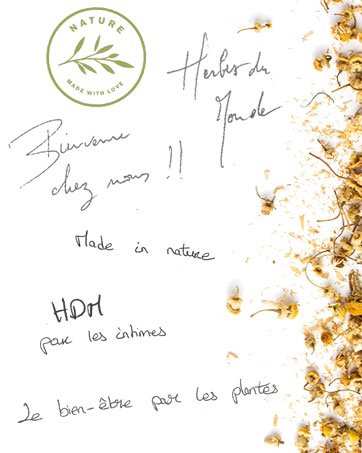 NATURE
MADE WITH LOVE
Herbes du
Monde
Bienvenue
chez nous !!
Made in nature
HDM
par les intimes
Le bien-être par les plantes